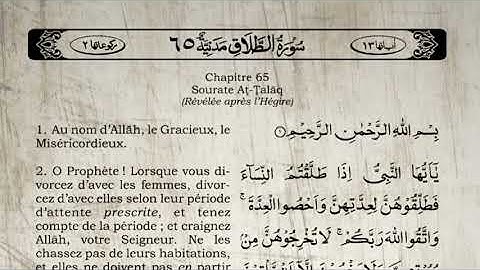 رکوعاتها ٢ سُوْرَةُ الطَّلَاقِ مَدَنِيَّةٌ ٦٥ اٰیاتها ١٣
Chapitre 65
Sourate Aṭ-Ṭalāq
(Révélée après l'Hégire)
1. Au nom d'Allāh, le Gracieux, le
Miséricordieux.
2. O Prophète ! Lorsque vous di-
vorcez d'avec les femmes, divor-
cez d'avec elles selon leur période
d'attente prescrite, et tenez
compte de la période ; et craignez
Allāh, votre Seigneur. Ne les
chassez pas de leurs habitations,
et elles ne doivent pas en partir
بِسْمِ اللّٰهِ الرَّحْمٰنِ الرَّحِيْمِ ①
يٰۤاَيُّهَا النَّبِىُّ اِذَا طَلَّقْتُمُ النِّسَآءَ
فَطَلِّقُوْهُنَّ لِعِدَّتِهِنَّ وَاَحْصُوا الْعِدَّةَ ۚ
وَاتَّقُوا اللّٰهَ رَبَّكُمْ ۚ لَا تُخْرِجُوْهُنَّ مِنْۢ